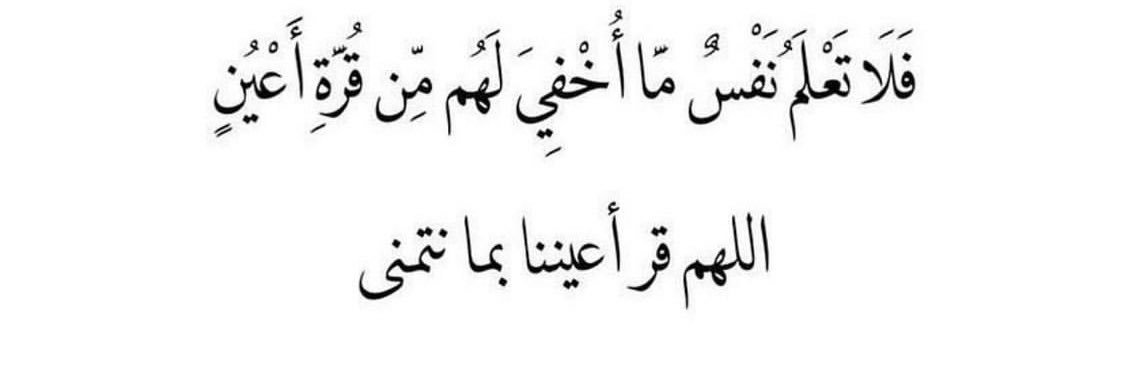 فَلَا تَعْلَمُ نَفْسٌ مَّا أُخْفِيَ لَهُم مِّن قُرَّةِ أَعْيُنٍ
اللهم قر أعيننا بما نتمنى